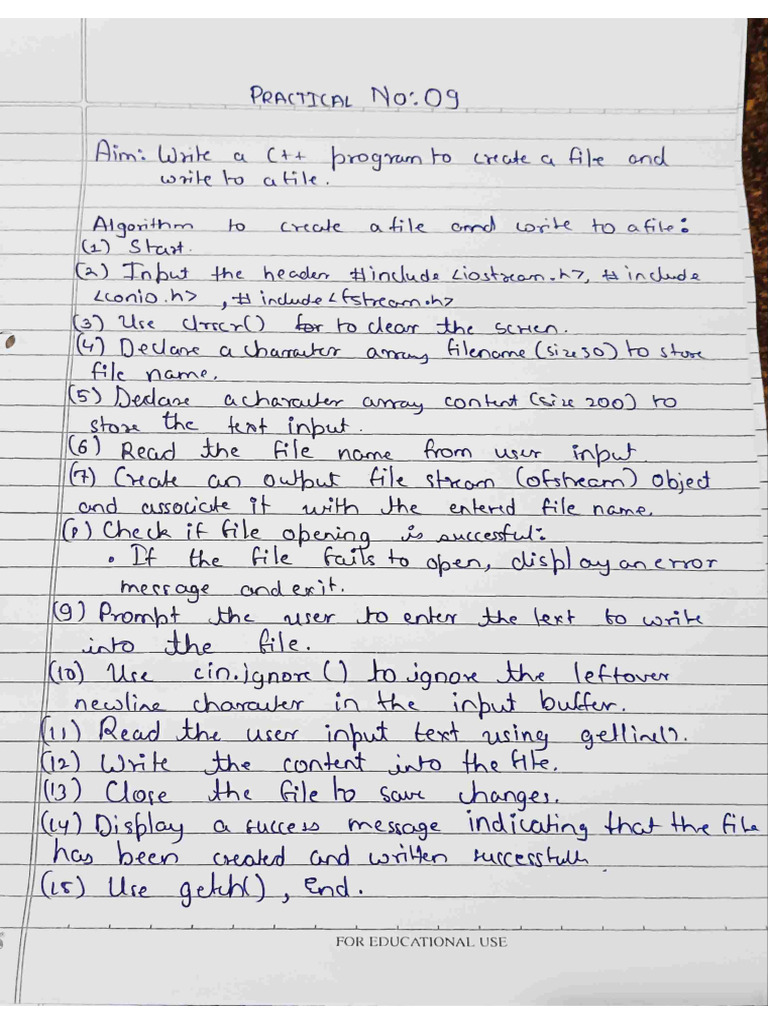 PRACTICAL No:.09
Aim: Write a C++ program to create a file and
write to a file.
Algorithm to create a file and write to a file:
(1) Start.
(2) Input the header #include <iostream.h>, #include
<conio.h> , # include <fstream.h>
(3) Use clrscr() to clear the screen.
(4) Declare a character array filename (size 30) to store
file name.
(5) Declare a character array content (size 200) to
store the text input.
(6) Read the file name from user input
(7) Create an output file stream (ofstream) object
and associate it with the entered file name.
(8) Check if file opening is successful:
• If the file fails to open, display an error
message and exit.
(9) Prompt the user to enter the text to write
into the file.
(10) Use cin.ignore() to ignore the leftover
newline character in the input buffer.
(11) Read the user input text using getline().
(12) Write the content into the file.
(13) Close the file to save changes.
(14) Display a success message indicating that the file
has been created and written successfully
(15) Use getch(), End.
FOR EDUCATIONAL USE